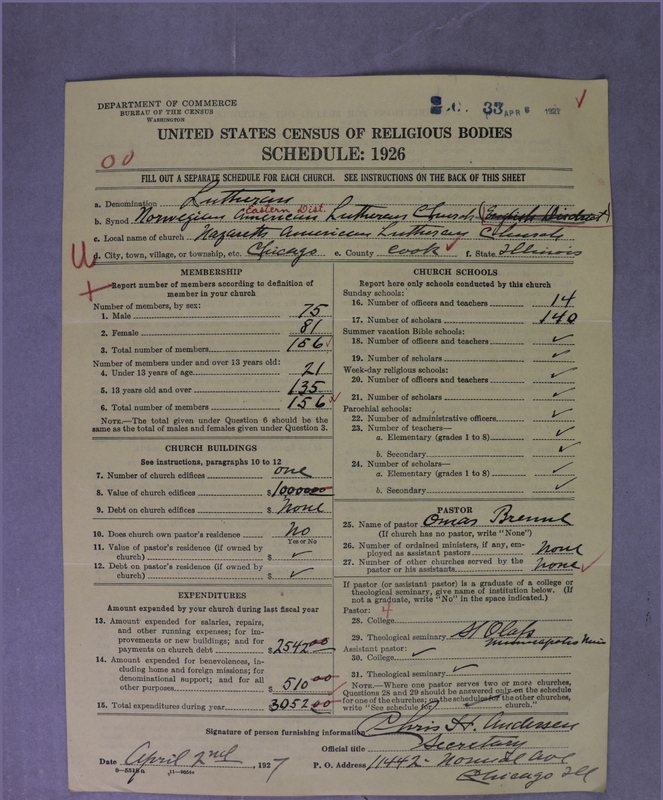 DEPARTMENT OF COMMERCE
BUREAU OF THE CENSUS
WASHINGTON
33 APR 8 1927
UNITED STATES CENSUS OF RELIGIOUS BODIES
SCHEDULE: 1926
FILL OUT A SEPARATE SCHEDULE FOR EACH CHURCH. SEE INSTRUCTIONS ON THE BACK OF THIS SHEET
a. Denomination Lutheran
Eastern Dist.
b. Synod Norwegian American Lutheran Church (English District)
c. Local name of church Nazareth American Lutheran Church
d. City, town, village, or township, etc. Chicago e. County Cook f. State Illinois
MEMBERSHIP
Report number of members according to definition of
member in your church
Number of members, by sex:
1. Male 75
2. Female 81
3. Total number of members 156
Number of members under and over 13 years old:
4. Under 13 years of age 21
5. 13 years old and over 135
6. Total number of members 156
NOTE.—The total given under Question 6 should be
same as the total of males and females given under Question 3.
CHURCH BUILDINGS
See instructions, paragraphs 10 to 12
7. Number of church edifices one
8. Value of church edifices $ 1000000
9. Debt on church edifices $ None
10. Does church own pastor's residence No
Yes or No
11. Value of pastor's residence (if owned by
church) $ ✓
12. Debt on pastor's residence (if owned by
church) $ ✓
EXPENDITURES
Amount expended by your church during last fiscal year
13. Amount expended for salaries, repairs,
and other running expenses; for im-
provements or new buildings; and for
payments on church debt $ 2542 00
14. Amount expended for benevolences, in-
cluding home and foreign missions; for
denominational support; and for all
other purposes $ 510 00
15. Total expenditures during year $ 3052 00
CHURCH SCHOOLS
Report here only schools conducted by this church
Sunday schools:
16. Number of officers and teachers 14
17. Number of scholars 140
Summer vacation Bible schools:
18. Number of officers and teachers ✓
19. Number of scholars ✓
Week-day religious schools:
20. Number of officers and teachers ✓
21. Number of scholars ✓
Parochial schools:
22. Number of administrative officers ✓
23. Number of teachers—
a. Elementary (grades 1 to 8) ✓
b. Secondary ✓
24. Number of scholars—
a. Elementary (grades 1 to 8) ✓
b. Secondary ✓
PASTOR
25. Name of pastor Omar Brenne
(If church has no pastor, write "None")
26. Number of ordained ministers, if any, em-
ployed as assistant pastors None
27. Number of other churches served by the
pastor or his assistants None
If pastor (or assistant pastor) is a graduate of a college or
theological seminary, give name of institution below. (If
not a graduate, write "No" in the space indicated.)
Pastor: 4
28. College
29. Theological seminary St Olafs
Minneapolis Minn
Assistant pastor:
30. College ✓
31. Theological seminary ✓
NOTE.—Where one pastor serves two or more churches,
Questions 28 and 29 should be answered only on the schedule
for one of the churches; on the schedules for the other churches,
write "See schedule for church."
Signature of person furnishing information Chris H. Andersen
Official title Secretary
Date April 2nd, 1927 P. O. Address 11442- Normal Ave
Chicago Ill